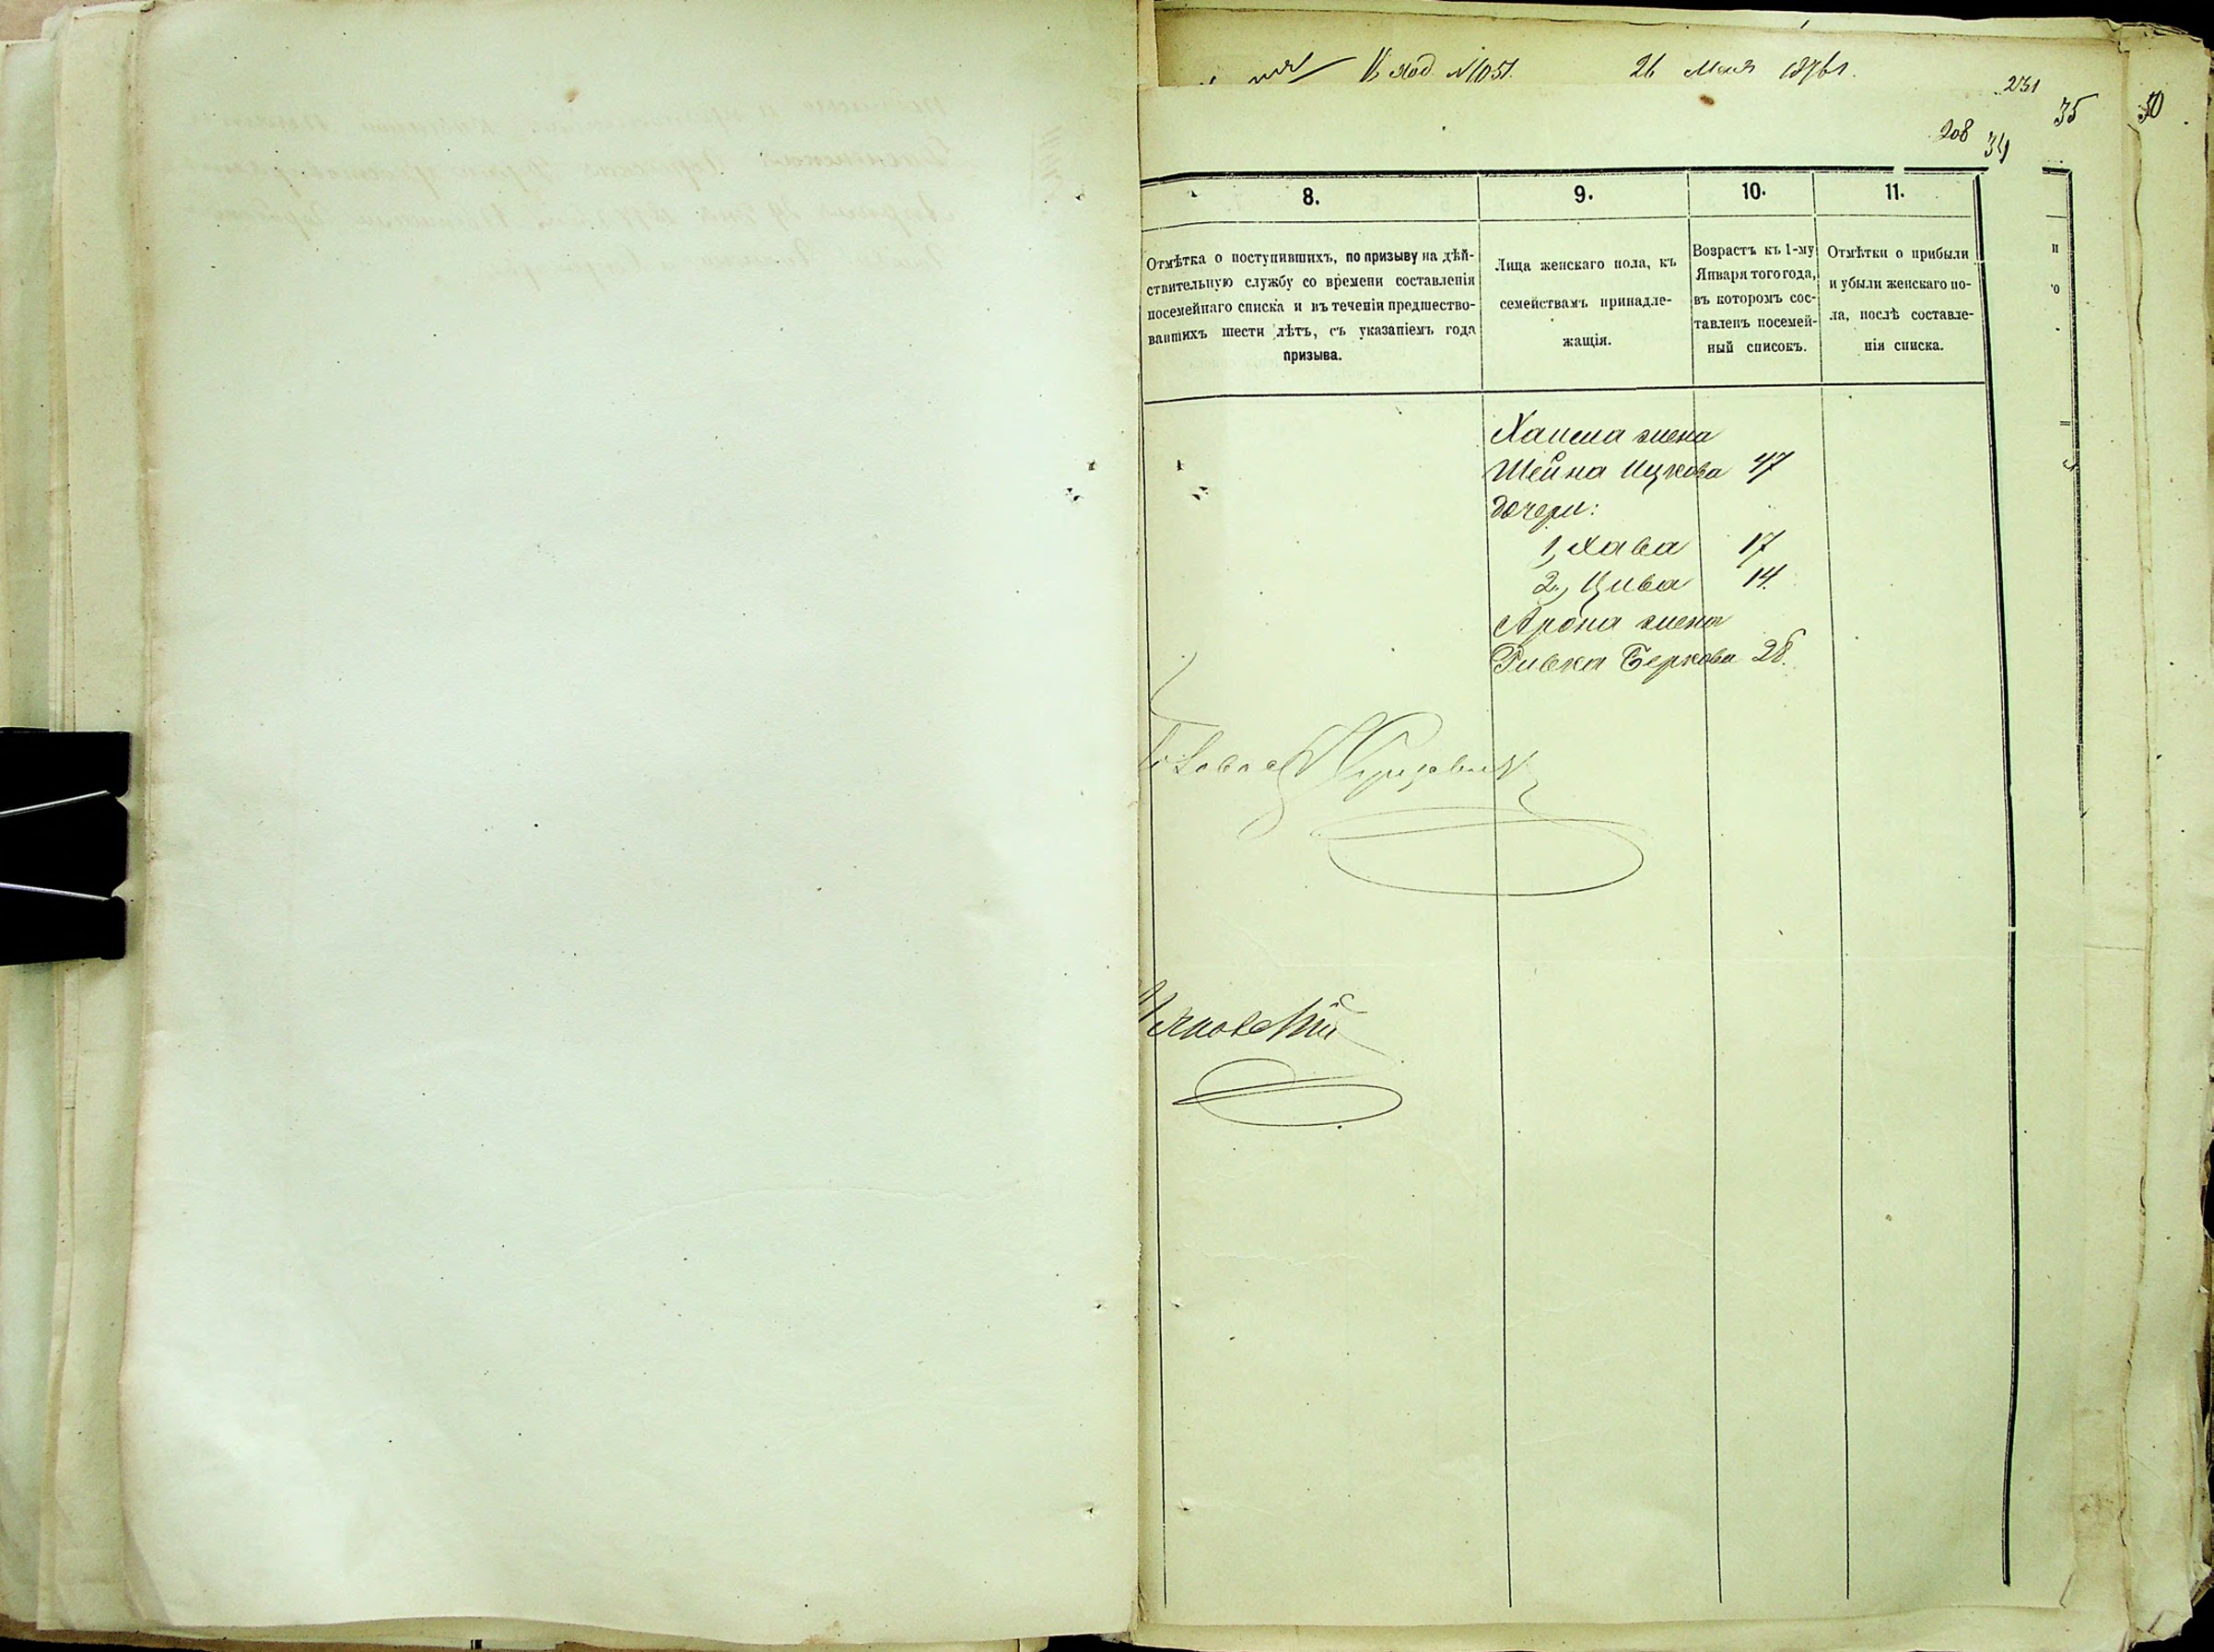 Вход №1051. 26 Мая 1876 г.
231
35
50
208
34
8.
9.
10.
11.
Отмѣтка о поступившихъ, по призыву на дѣй-
ствительную службу со времени составленія
посемейнаго списка и въ теченіи предшество-
вавшихъ шести лѣтъ, съ указаніемъ года
призыва.
Лица женскаго пола, къ
семействамъ принадле-
жащія.
Возрастъ къ 1-му
Января того года,
въ которомъ сос-
тавленъ посемей-
ный списокъ.
Отмѣтки о прибыли
и убыли женскаго по-
ла, послѣ составле-
нія списка.
жена
Шейна Ицкова 47
дочери:
1, Хава 17
2, Цива 14
Арона жена
Ривка Беркова 28.